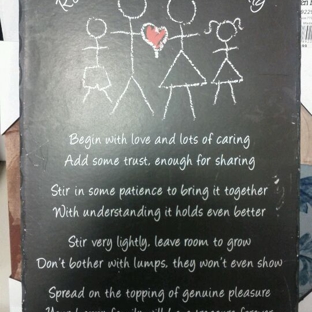 Begin with love and lots of caring
Add some trust, enough for sharing
Stir in some patience to bring it together
With understanding it holds even better
Stir very lightly, leave room to grow
Don't bother with lumps, they won't even show
Spread on the topping of genuine pleasure